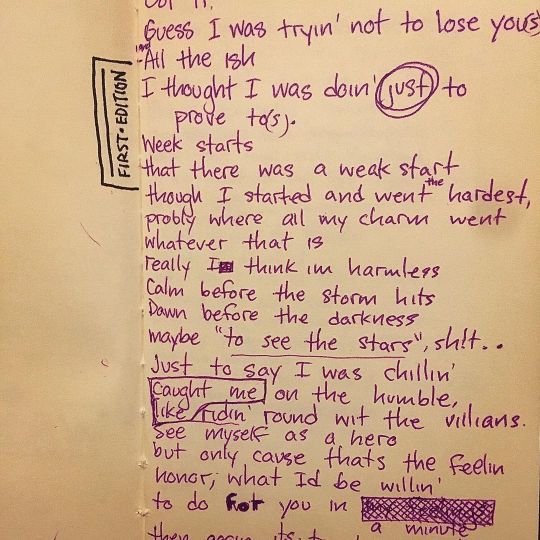 Guess I was tryin' not to lose you(s)
and All the ish
I thought I was doin' just to
prove to(s).
Week starts
that there was a weak start
though I started and went the hardest,
probly where all my charm went
whatever that is
really I think im harmless
Calm before the storm hits
Dawn before the darkness
maybe "to see the stars", sh!t..
Just to say I was chillin'
Caught me on the humble,
like ridin' round wit the villians.
See myself as a hero
but only cause thats the feelin
honor, what Id be willin'
to do for you in
a minute
FIRST • EDITION